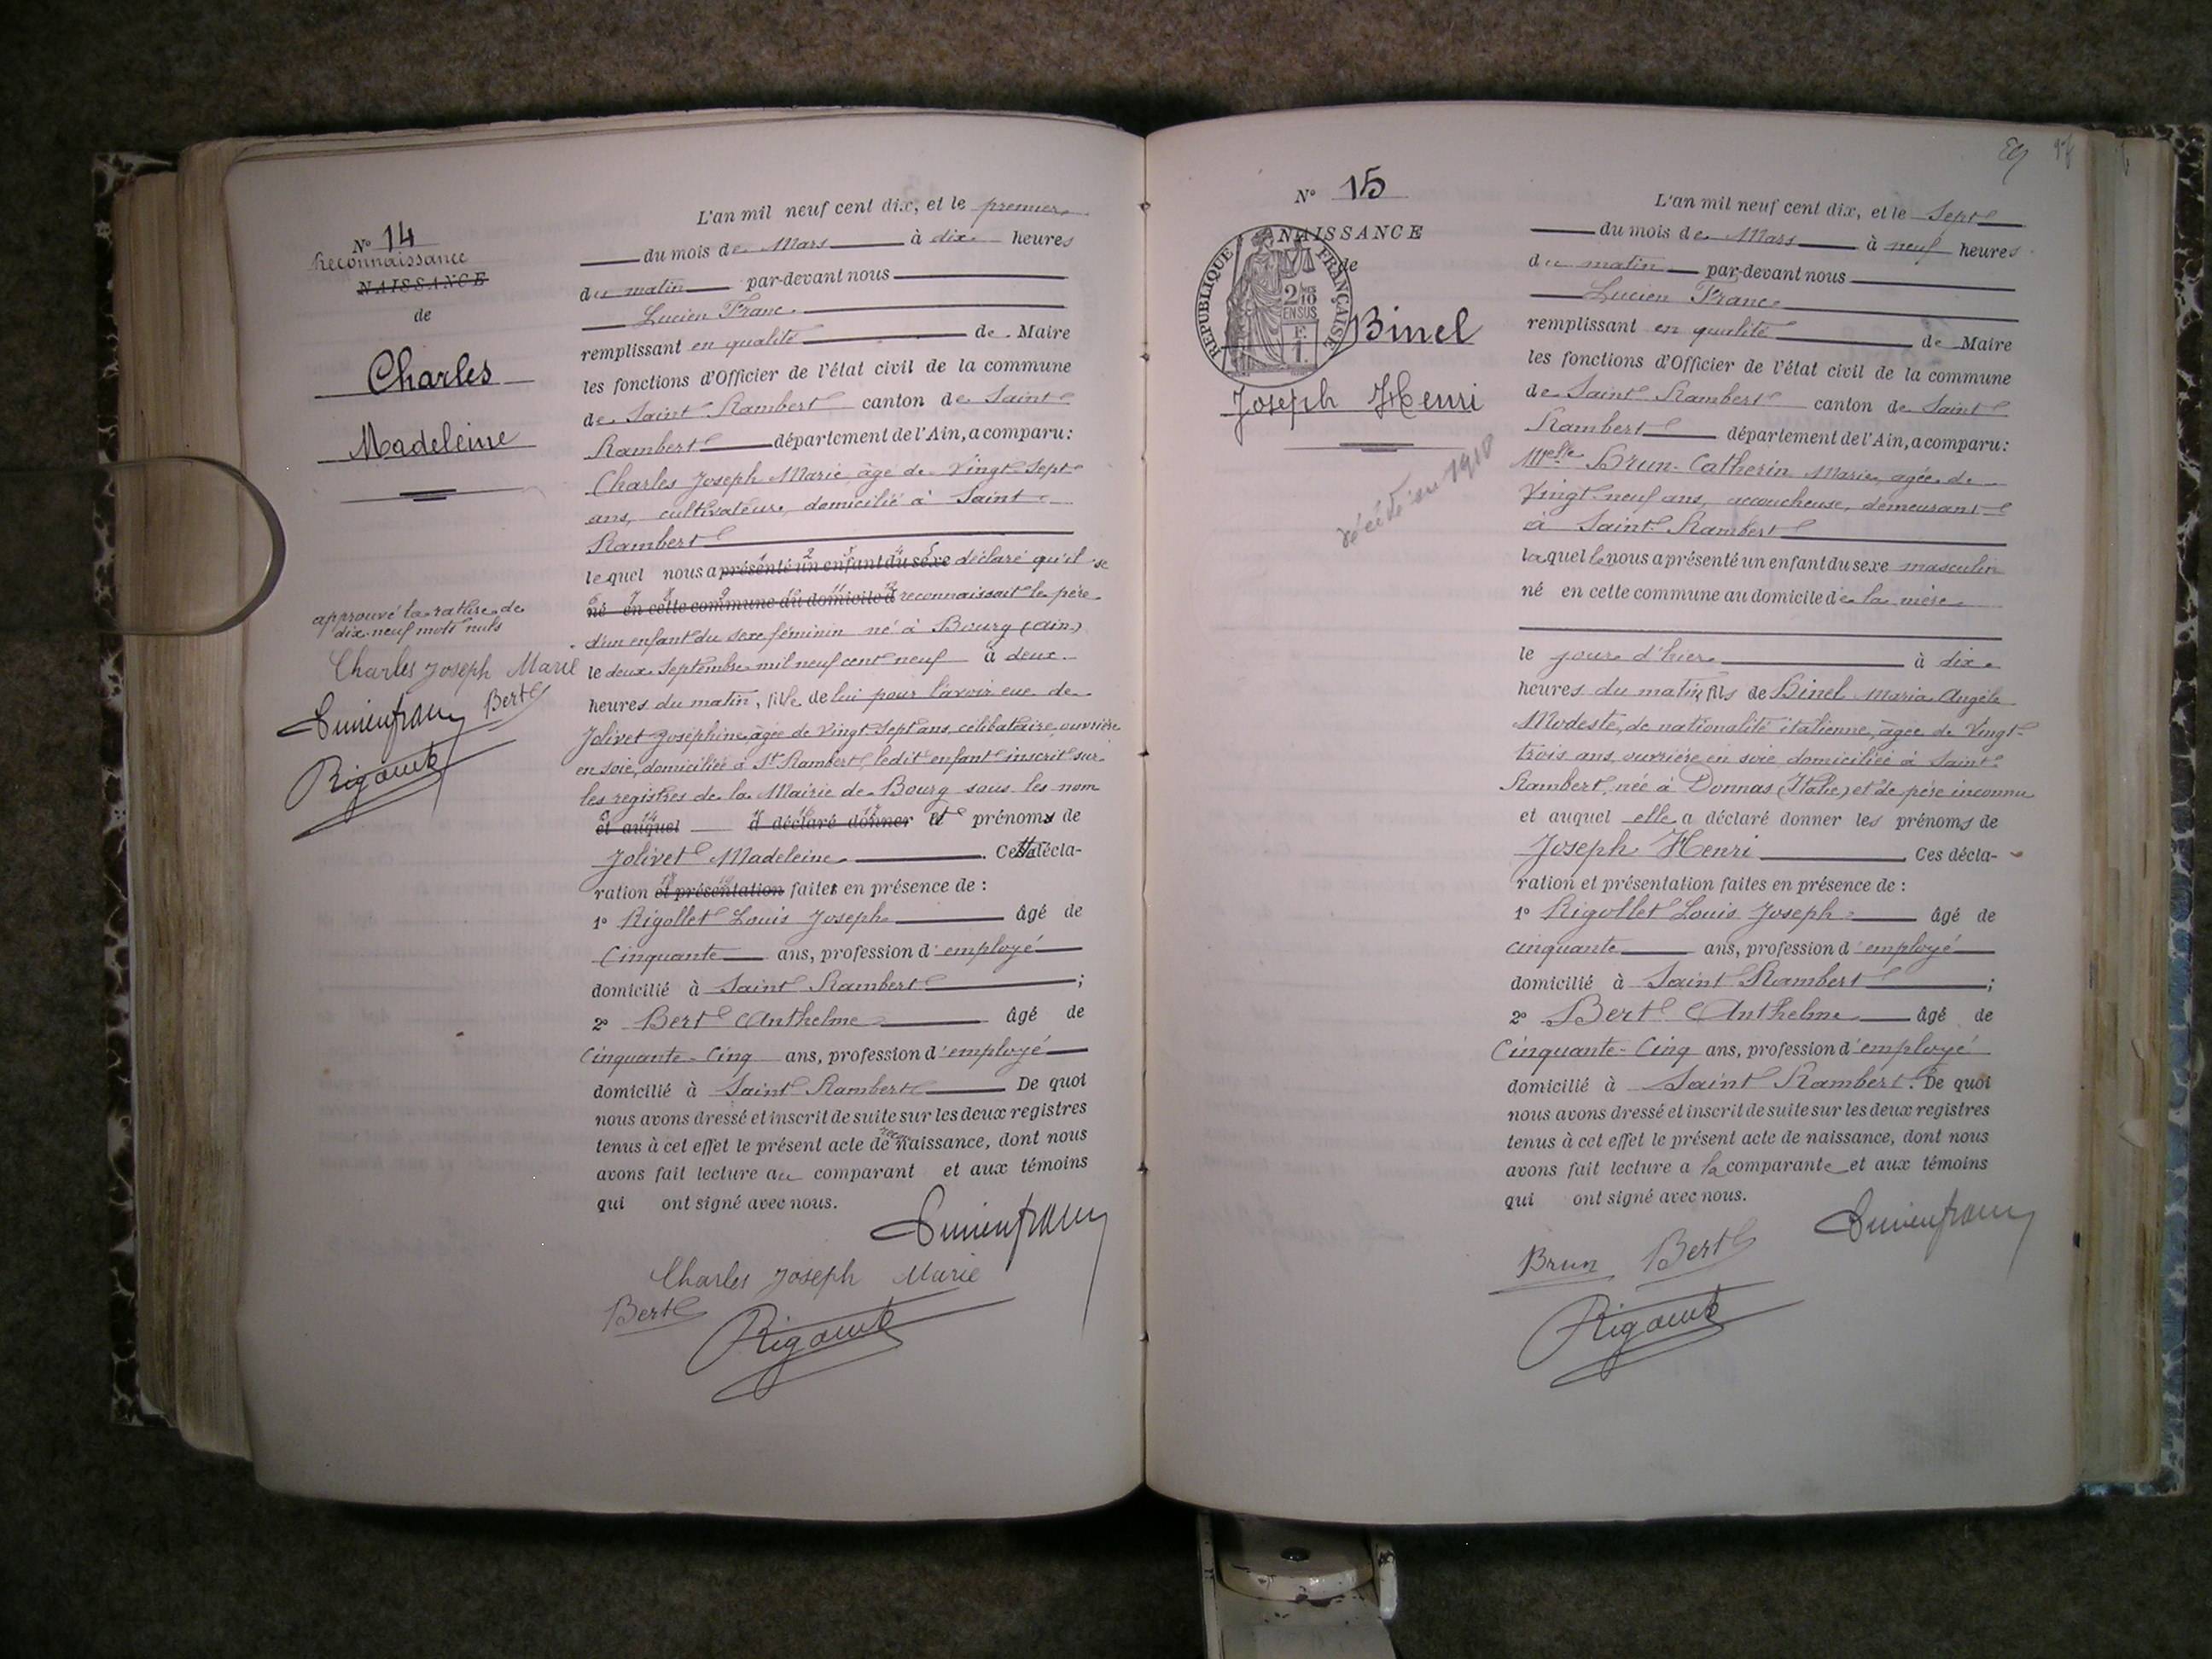 N° 14
Reconnaissance
NAISSANCE
de
Charles
Madeleine
approuvé la rature de
dix-neuf mots nuls
Charles Joseph Marie
Lucien franc Bert
L'an mil neuf cent dix, et le premier
du mois de Mars à dix heures
du matin par-devant nous
Lucien Franc
remplissant en qualité de Maire
les fonctions d'Officier de l'état civil de la commune
de Saint Rambert canton de Saint
Rambert département de l'Ain, a comparu :
Charles Joseph Marie, âgé de Vingt Sept
ans, cultivateur, domicilié à Saint
Rambert
lequel nous a présenté un enfant du sexe déclaré qu'il se
né en cette commune au domicile d reconnaissait le père
d'un enfant du sexe féminin né à Bourg (Ain)
le deux Septembre mil neuf cent neuf à deux
heures du matin, fille de lui pour l'avoir eue de
Jolivet Joséphine, âgée de Vingt Sept ans, célibataire, ouvrière
en soie, domiciliée à St Rambert, ledit enfant inscrit sur
les registres de la Mairie de Bourg sous les nom
et auquel a déclaré donner et prénoms de
Jolivet Madeleine. Cette décla-
ration et présentation faites en présence de :
1° Rigollet Louis Joseph âgé de
Cinquante ans, profession d'employé
domicilié à Saint Rambert ;
2° Bert Anthelme âgé de
Cinquante-Cinq ans, profession d'employé
domicilié à Saint Rambert De quoi
nous avons dressé et inscrit de suite sur les deux registres
tenus à cet effet le présent acte de naissance, dont nous
avons fait lecture au comparant et aux témoins
qui ont signé avec nous.
Lucien franc
Charles Joseph Marie
Bert
N° 15
NAISSANCE
de
RÉPUBLIQUE FRANÇAISE
2/10 EN SUS
Binel
Joseph Henri
décédé en 1910
L'an mil neuf cent dix, et le Sept
du mois de Mars à neuf heures
du matin par-devant nous
Lucien Franc
remplissant en qualité de Maire
les fonctions d'Officier de l'état civil de la commune
de Saint Rambert canton de Saint
Rambert département de l'Ain, a comparu :
Melle Brun Catherin Marie, agée de
Vingt neuf ans, accoucheuse, demeurant
à Saint Rambert
laquelle nous a présenté un enfant du sexe masculin
né en cette commune au domicile de la mère
le jour d'hier à dix
heures du matin, fils de Binel Maria Angèle
Modeste, de nationalité italienne, âgée de Vingt
trois ans, ouvrière en soie domiciliée à Saint
Rambert, née à Donnas (Italie) et de père inconnu
et auquel elle a déclaré donner les prénoms de
Joseph Henri. Ces décla-
ration et présentation faites en présence de :
1° Rigollet Louis Joseph âgé de
cinquante ans, profession d'employé
domicilié à Saint Rambert ;
2° Bert Anthelme âgé de
Cinquante-Cinq ans, profession d'employé
domicilié à Saint Rambert. De quoi
nous avons dressé et inscrit de suite sur les deux registres
tenus à cet effet le présent acte de naissance, dont nous
avons fait lecture a la comparante et aux témoins
qui ont signé avec nous.
Lucien franc
Brun Bert